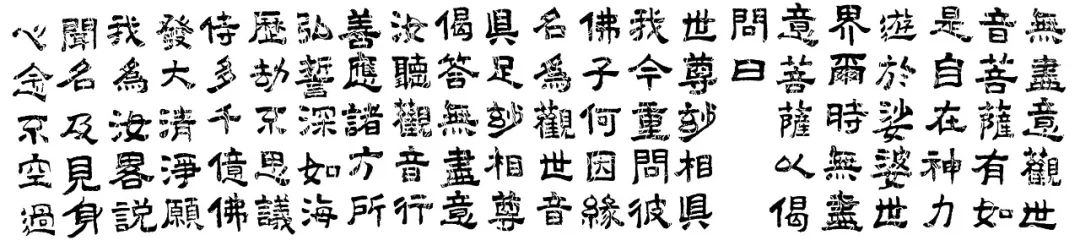 無盡意觀世
音菩薩有如
是自在神力
遊於娑婆世
界爾時無盡
意菩薩以偈
問曰
世尊妙相具
我今重問彼
佛子何因緣
名為觀世音
具足妙相尊
偈答無盡意
汝聽觀音行
善應諸方所
弘誓深如海
歷劫不思議
侍多千億佛
發大清淨願
我為汝畧說
聞名及見身
心念不空過